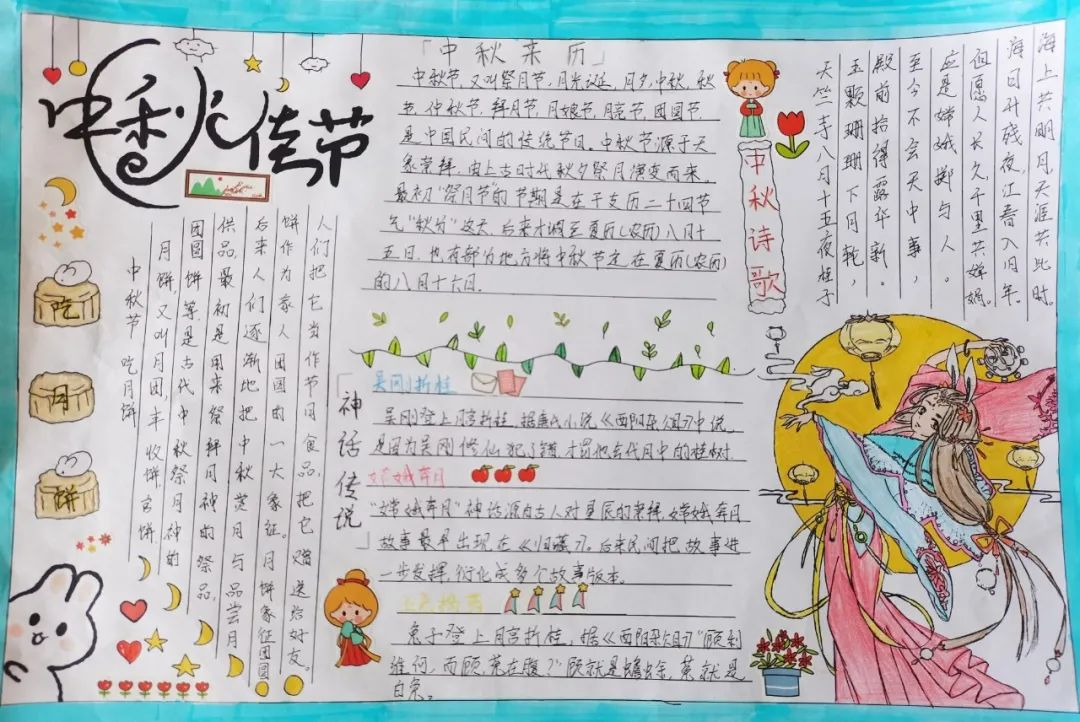 中秋佳节
「中秋来历」
中秋节，又叫祭月节，月光诞，月夕，中秋，秋
节，仲秋节，拜月节，月娘节，月亮节，团圆节，
是中国民间的传统节日。中秋节源于天
象崇拜，由上古时代秋夕祭月演变而来。
最初“祭月节”的节期是在干支历二十四节
气“秋分”这天，后来才调至夏历（农历）八月十
五日，也有部分地方将中秋节定在夏历（农历）
的八月十六日。
中秋诗歌
海上共明月，天涯共此时。
海日升残夜，江春入旧年。
但愿人长久，千里共婵娟。
应是嫦娥掷与人。
至今不会天中事，
殿前拾得露华新。
玉颗珊珊下月轮，
天竺寺八月十五夜桂子
吃
月
饼
中秋节吃月饼
月饼，又叫月团，丰收饼，宫饼，
团圆饼等，是古代中秋祭月神的
供品，最初是用来祭拜月神的祭品，
后来人们逐渐地把中秋赏月与品尝月
饼作为家人团圆的一大象征。月饼象征团圆
人们把它当作节日食品，把它赠送给好友。
「神话传说」
吴刚折桂
吴刚登上月宫折桂，据唐代小说《酉阳杂俎》中说，
是因为吴刚修仙犯了错，才罚他去伐月中的桂树．
嫦娥奔月
“嫦娥奔月”神话源自古人对星辰的崇拜，嫦娥奔月
故事最早出现在《归藏》。后来民间把故事进
一步发挥，衍化成多个故事版本。
兔子登上月宫折桂，据《酉阳杂俎》“顾利
维何，而顾，菟在腹？”顾就是蟾蜍，菟就是
白兔。